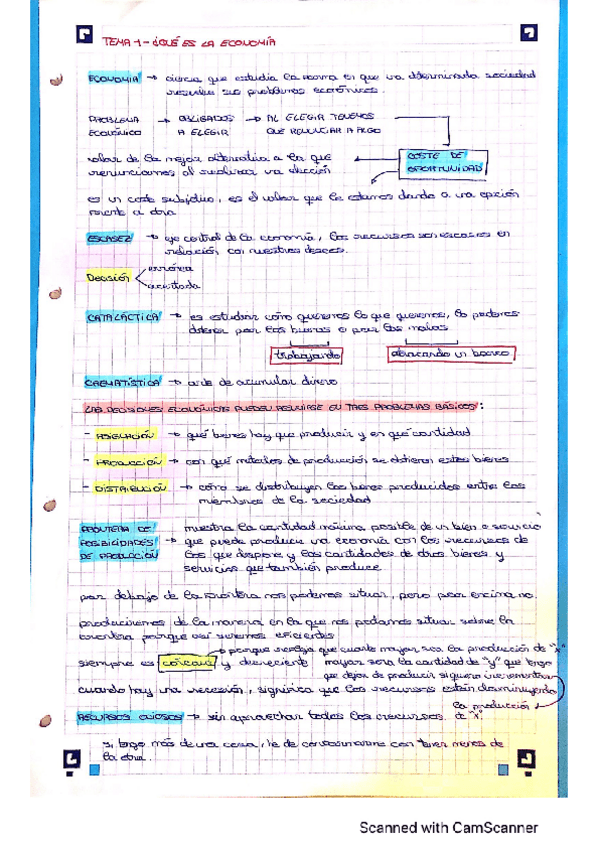 TEMA 1 - ¿QUÉ ES LA ECONOMÍA
ECONOMÍA → ciencia que estudia la forma en que una determinada sociedad
resuelve sus problemas económicos.
PROBLEMA → OBLIGADOS → AL ELEGIR TENEMOS
ECONÓMICO A ELEGIR QUE RENUNCIAR A ALGO
valor de la mejor alternativa a la que COSTE DE
renunciamos al realizar una elección OPORTUNIDAD
es un coste subjetivo, es el valor que le estamos dando a una opción
frente a otra
ESCASEZ → eje central de la economía, los recursos son escasos en
relación con nuestros deseos.
Decisión errónea
acertada
CATALÁCTICA → es estudiar cómo queremos lo que queremos, lo podemos
obtener por las buenas o por las malas
trabajando atracando un banco
CREMATÍSTICA → arte de acumular dinero
LAS DECISIONES ECONÓMICAS PUEDEN RESUMIRSE EN TRES PROBLEMAS BÁSICOS:
- ASIGNACIÓN → qué bienes hay que producir y en qué cantidad
- PRODUCCIÓN → con qué métodos de producción se obtienen estos bienes
- DISTRIBUCIÓN → cómo se distribuyen los bienes producidos entre los
miembros de la sociedad
FRONTERA DE muestra la cantidad máxima posible de un bien o servicio
POSIBILIDADES → que puede producir una economía con los recursos de
DE PRODUCCIÓN los que dispone y las cantidades de otros bienes y
servicios que también produce
por debajo de la frontera nos podemos situar, pero por encima no.
produciremos de la manera en la que nos podamos situar sobre la
frontera porque así seremos eficientes
→ porque refleja que cuanto mayor sea la producción de "x"
siempre es cóncava y decreciente mayor será la cantidad de "y" que tengo
que dejar de producir si quiero incrementar
cuando hay una recesión, significa que los recursos están disminuyendo
la producción
RECURSOS OCIOSOS → sin aprovechar todos los recursos. de "x".
si tengo más de una cosa, he de conformarme con tener menos de
la otra.
Scanned with CamScanner